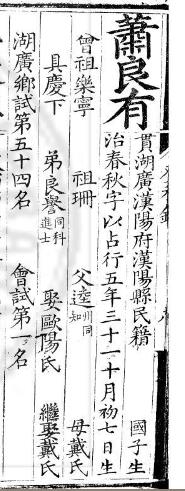 蕭良有
貫湖廣漢陽府漢陽縣民籍 國子生
治春秋字以占行五年三十一十月初七日生
曾祖樂寧 祖珊 父逵 州同知 母戴氏
具慶下 弟良譽 同科進士 娶歐陽氏 繼娶戴氏
湖廣鄉試第五十四名 會試第一名